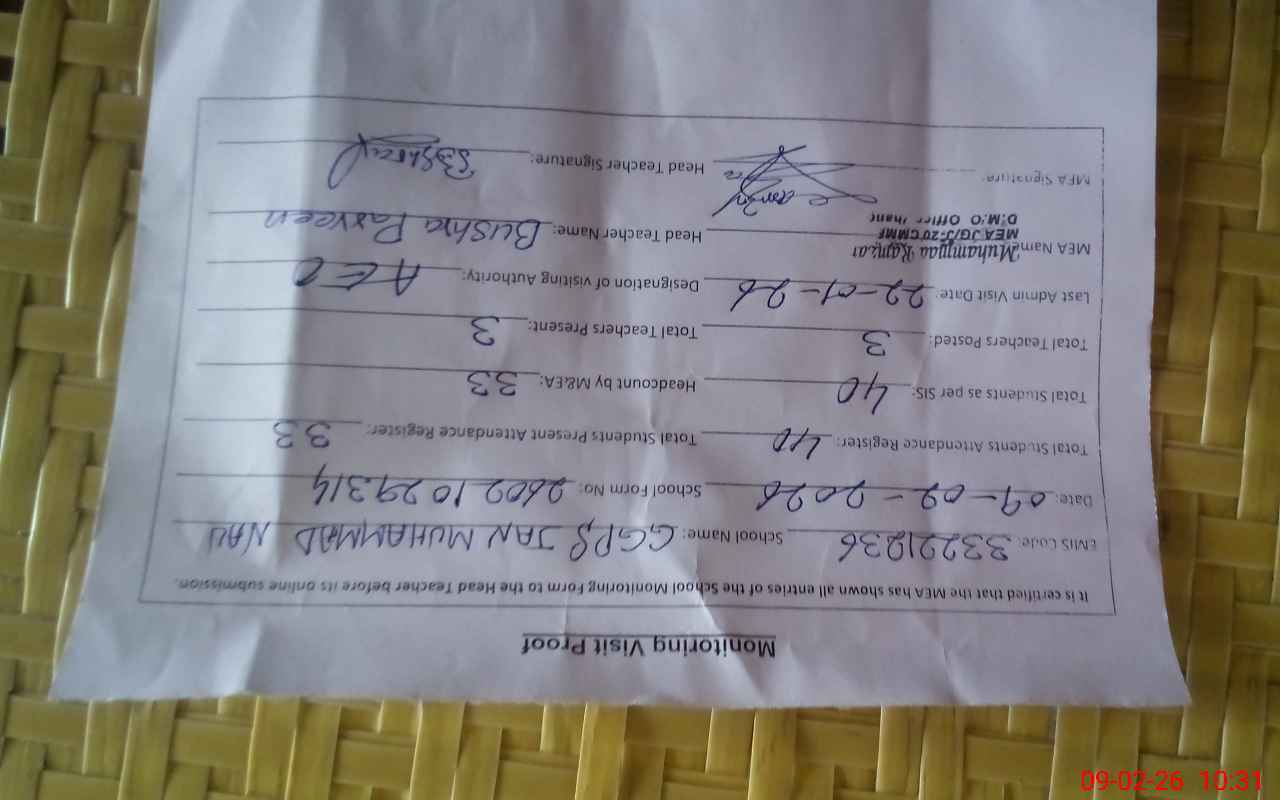 Monitoring Visit Proof
It is certified that the MEA has shown all entries of the School Monitoring Form to the Head Teacher before its online submission.
EMIS Code: 33221236 School Name: GGPS JAN MUHAMMAD NAU
Date: 09-02-2026 School Form No: 26021029314
Total Students Attendance Register: 40 Total Students Present Attendance Register: 33
Total Students as per SIS: 40 Headcount by M&EA: 33
Total Teachers Posted: 3 Total Teachers Present: 3
Last Admin Visit Date: 22-01-26 Designation of visiting Authority: AEO
MEA Name: Muhammad Head Teacher Name: Bushra Parveen
D.M.O Office
MEA Signature: Head Teacher Signature:
09-02-26 10:31